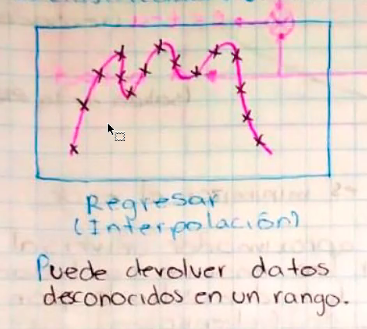 Regresar
(Interpolación)
Puede devolver datos
desconocidos en un rango.